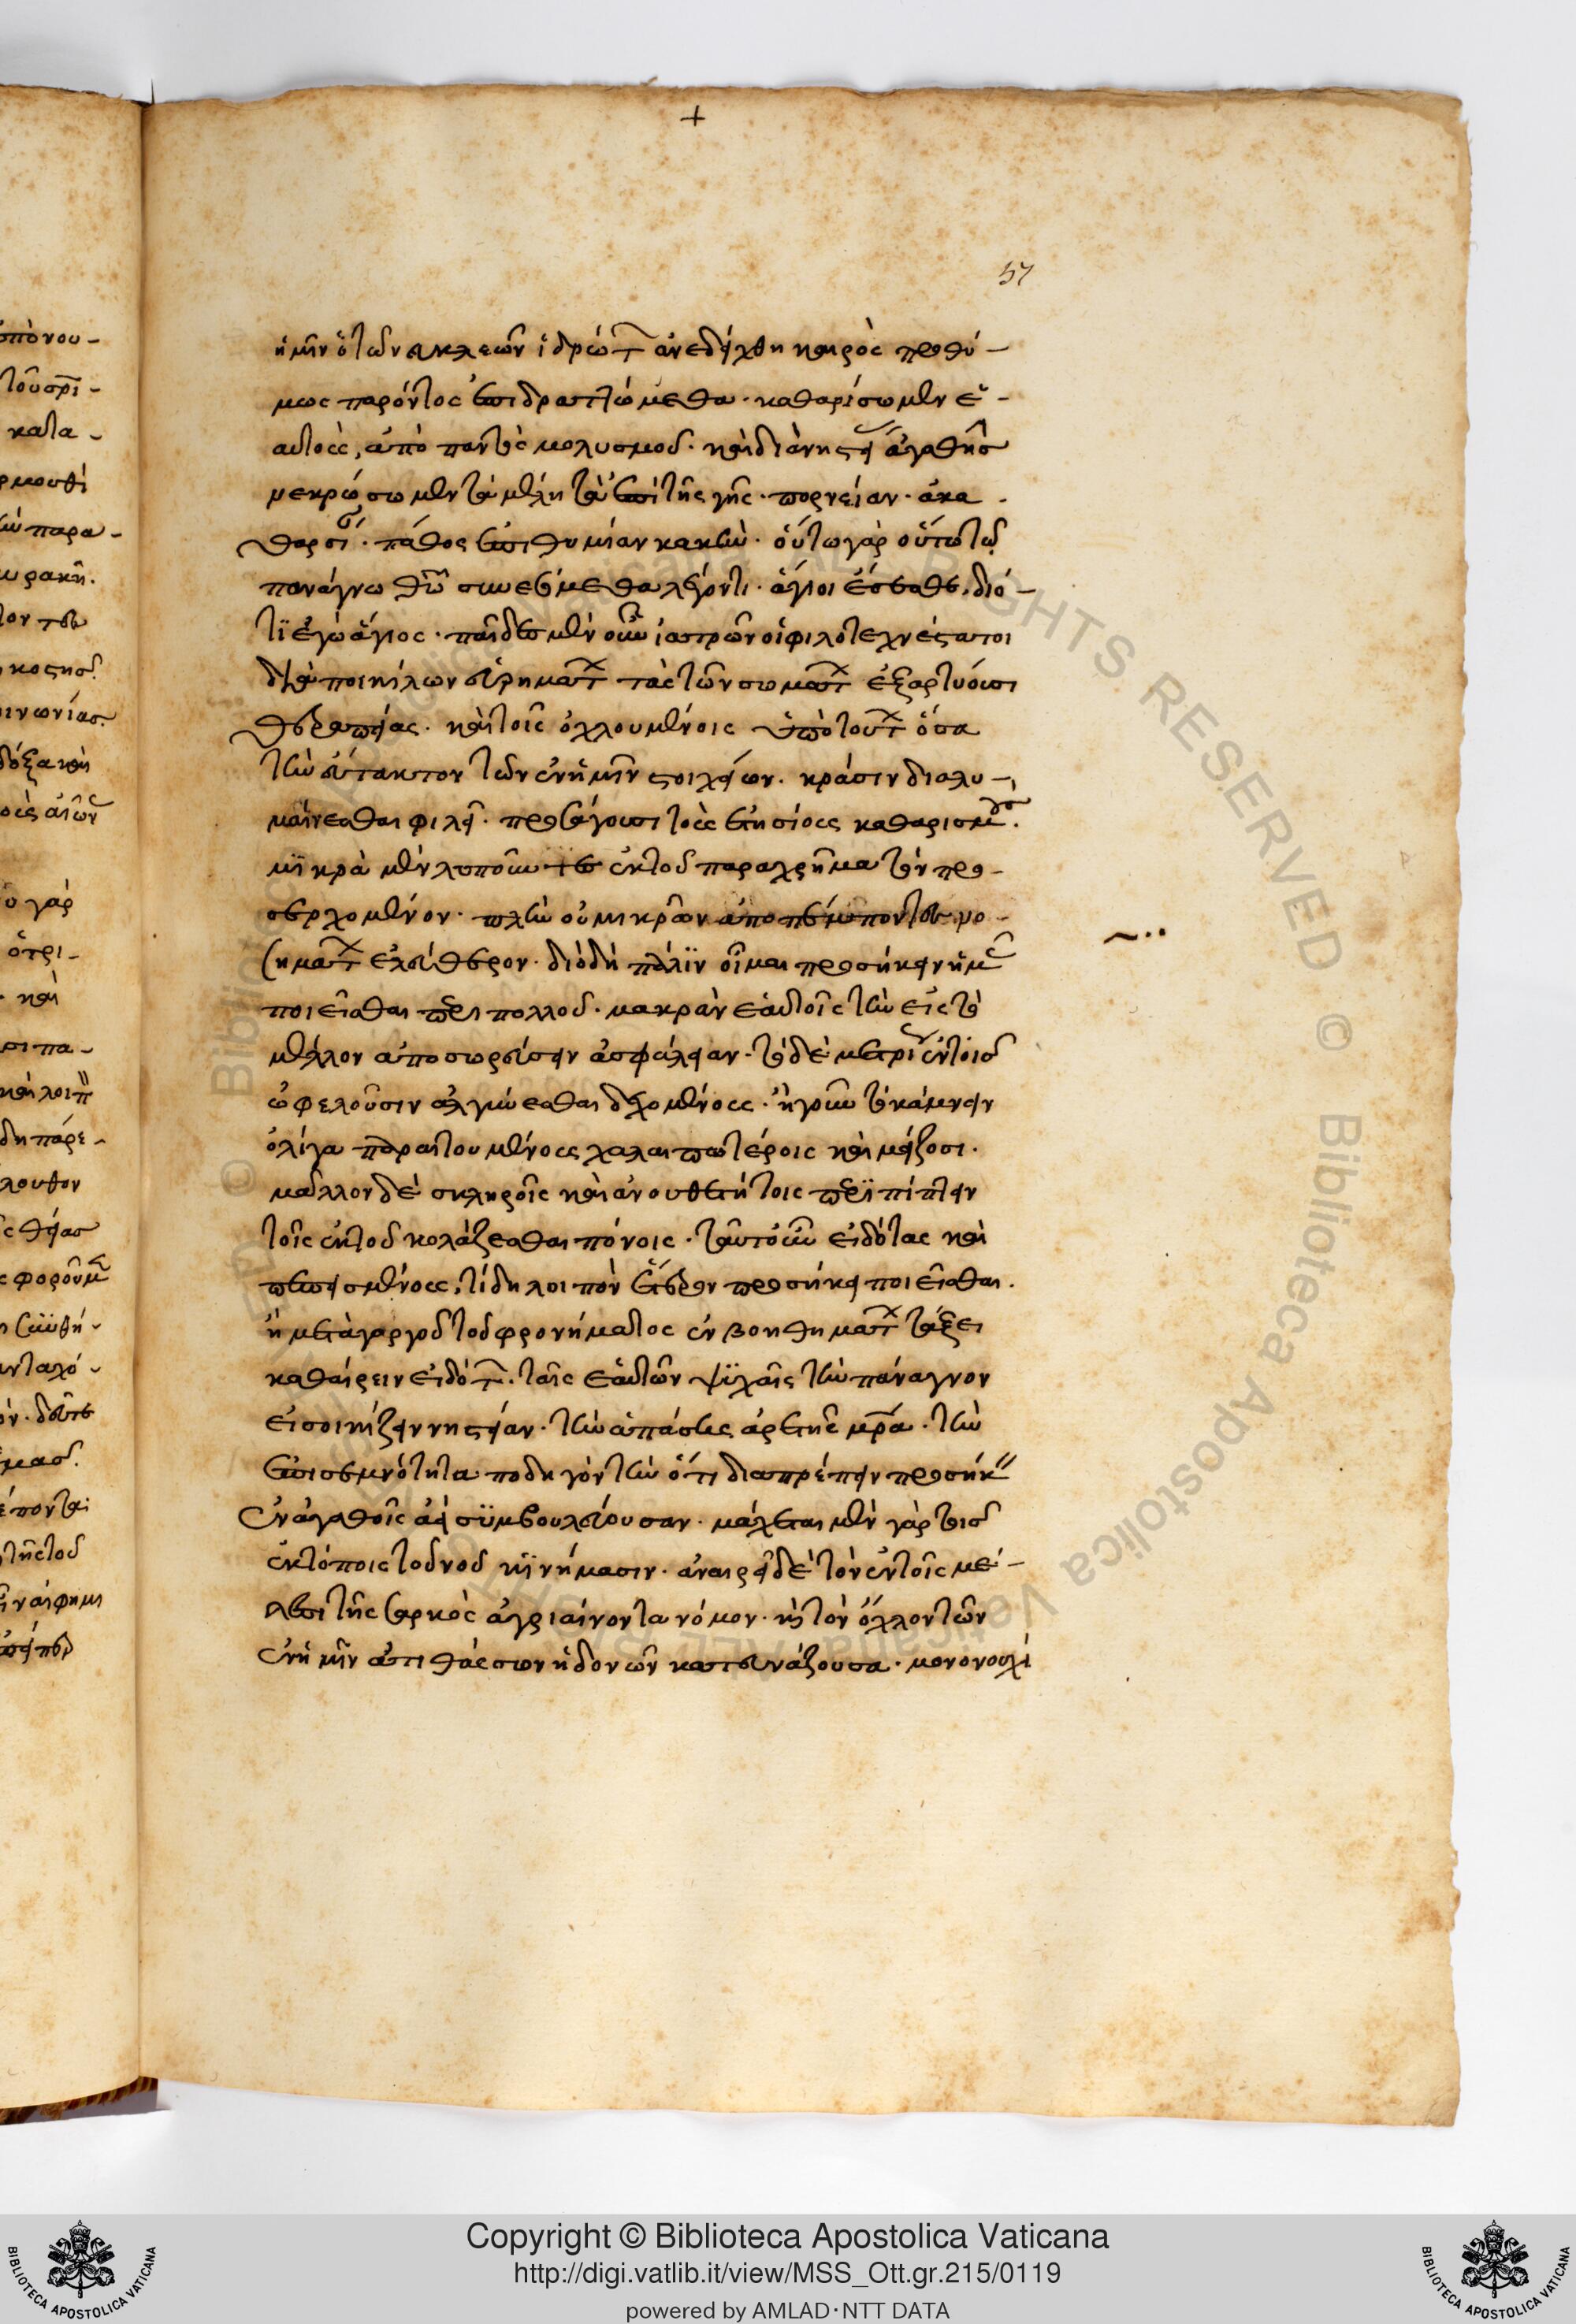 +
57
ἡμῖν ὁ τῶν εὐκλεῶν ἱδρώτ ἀνεδείχθη καιρὸς προθύ-
μως παρόντος ἐπιδραττώμεθα · καθαρίσωμεν ἑ-
αυτοὺς, ἀπὸ παντὸς μολυσμοῦ · καὶ διὰ νηστεί ἀγαθῆς
νεκρώσωμεν τὰ μέλη τὰ ἐπὶ τῆς γῆς · πορνείαν · ἀκα
θαρσί · πάθος ἐπιθυμίαν κακὴν · οὕτω γὰρ οὕτω τῷ
πανάγνω θῶ συνεσόμεθα λέγοντι · ἅγιοι ἔσεσθε, διό-
τι ἐγὼ ἅγιος · παίδες μὲν οὖν ἰατρῶν οἱ φιλοτεχνέστατοι
διὰ ποικίλων εὑρημάτ τὰς τῶν σωμάτ ἐξαρτύουσι
θεραπείας · καὶ τοῖς ὀχλουμένοις ὑπὸ τούτ ὅσα
τὴν εὔτακτον τῶν ἐν ἡμῖν στοιχείων · κράσιν διαλυ-
μαίνεσθαι φιλεῖ · προσάγουσι τοὺς ἐτησίους καθαρισμούς.
μικρὰ μὲν λυποῦντες ἐκ τοῦ παραχρῆμα τὸν προ-
σερχόμενον · πλὴν οὐ μικρῶν ἀποπέμποντες νο-
σημάτ ἐλεύθερον · διὸ δὴ πάλιν οἶμαι προσήκειν ἡμ
ποιεῖσθαι περὶ πολλοῦ · μακρὰν ἑαυτοῖς τὴν εἰς τὸ
μέλλον ἀποσωρεύσειν ἀσφάλειαν · τὸ δὲ μετρί ἐν τοῖς
ὠφελοῦσιν ἀλγύνεσθαι δεχομένους · ἤγουν τὸ κάμνειν
ὀλίγα παραιτουμένους χαλαιπωτέροις καὶ μείζοσι ·
μᾶλλον δὲ σκληροῖς καὶ ἀνουθετήτοις περιπίπτειν
τοῖς ἐκ τοῦ κολάζεσθαι πόνοις · ταῦτ οὖν εἰδότας καὶ
πεπεισμένους, τί δὴ λοιπὸν ἕτερον προσήκει ποιεῖσθαι ·
ἢ μετὰ γοργοῦ τοῦ φρονήματος ἐν βοηθημάτ τάξει
καθαίρειν εἰδότ · ταῖς ἑαυτῶν ψυχαῖς τὴν πάναγνον
εἰσοικίζειν νηστείαν · τὴν ἁπάσης ἀρετῆς μρα · τὴν
ἐπὶ σεμνότητα ποδηγόν τὴν ὅτι διαπρέπειν προσήκ
ἐν ἀγαθοῖς ἀεὶ συμβουλεύουσαν · μάχεται μὲν γὰρ τοῖς
ἐκτόποις τοῦ νοῦ κινήμασιν · ἀναιρεῖ δὲ τὸν ἐν τοῖς μέ-
λεσι τῆς σαρκὸς ἀγριαίνοντα νόμον · καὶ τὸν ὄχλον τῶν
ἐν ἡμῖν ἀτιθάσσων ἡδονῶν κατευνάζουσα · μονονουχὶ
Copyright © Biblioteca Apostolica Vaticana
http://digi.vatlib.it/view/MSS_Ott.gr.215/0119
powered by AMLAD·NTT DATA
BIBLIOTECA APOSTOLICA VATICANA
BIBLIOTECA APOSTOLICA VATICANA